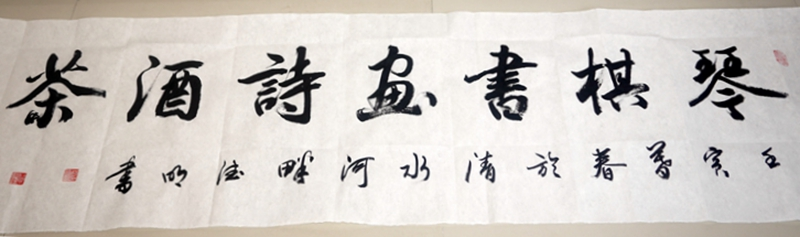 琴棋書畫詩酒茶
壬寅暮春於清水河畔德明書